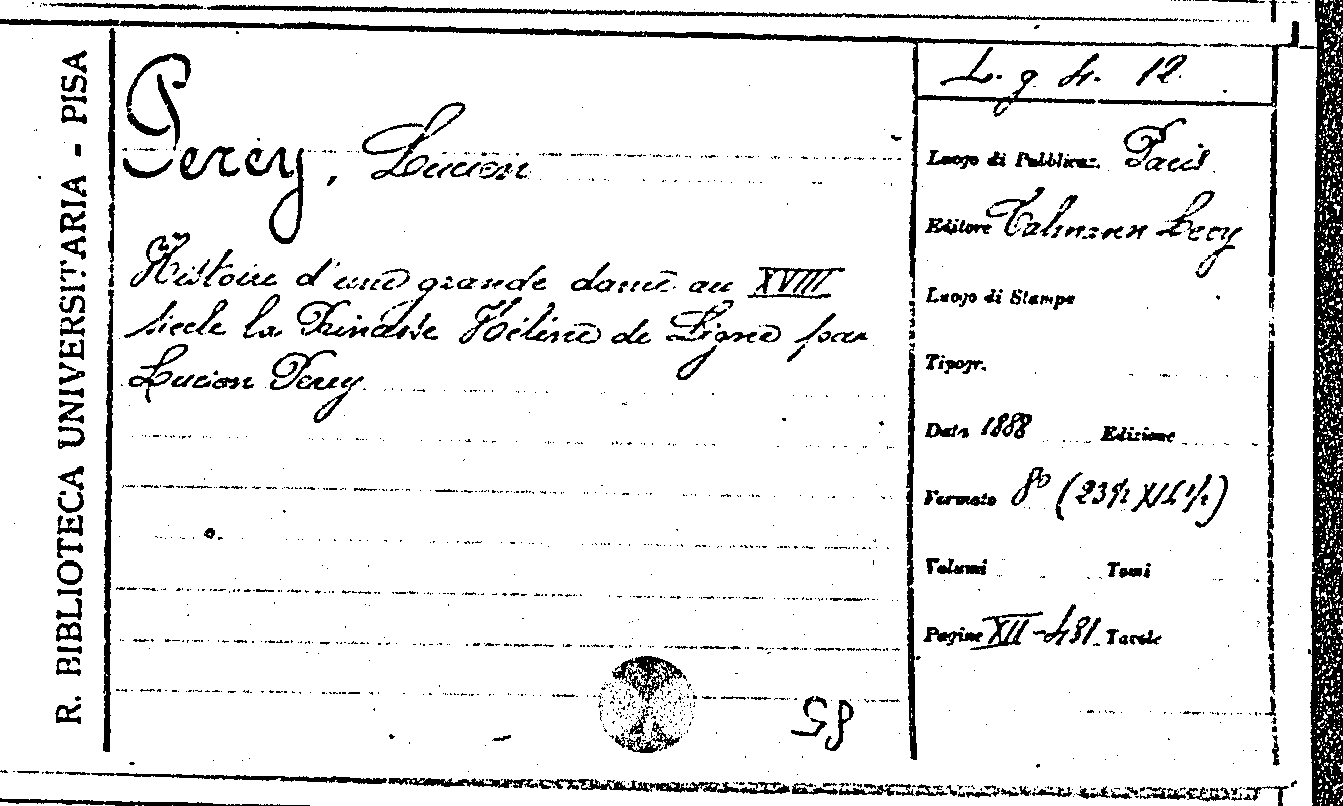 R. BIBLIOTECA UNIVERSITARIA - PISA
Percy, Lucien
Histoire d'une grande dame au XVIII
siecle la Princesse Hélène de Ligne par
Lucien Percy
58
L. g 4. 12
Luogo di Pubblicaz. Paris
Editore Calmann Levy
Luogo di Stampa
Tipogr.
Data 1888 Edizione
Formato 8º (23½ X
Volumi Tomi
Pagine XII-481. Tavole